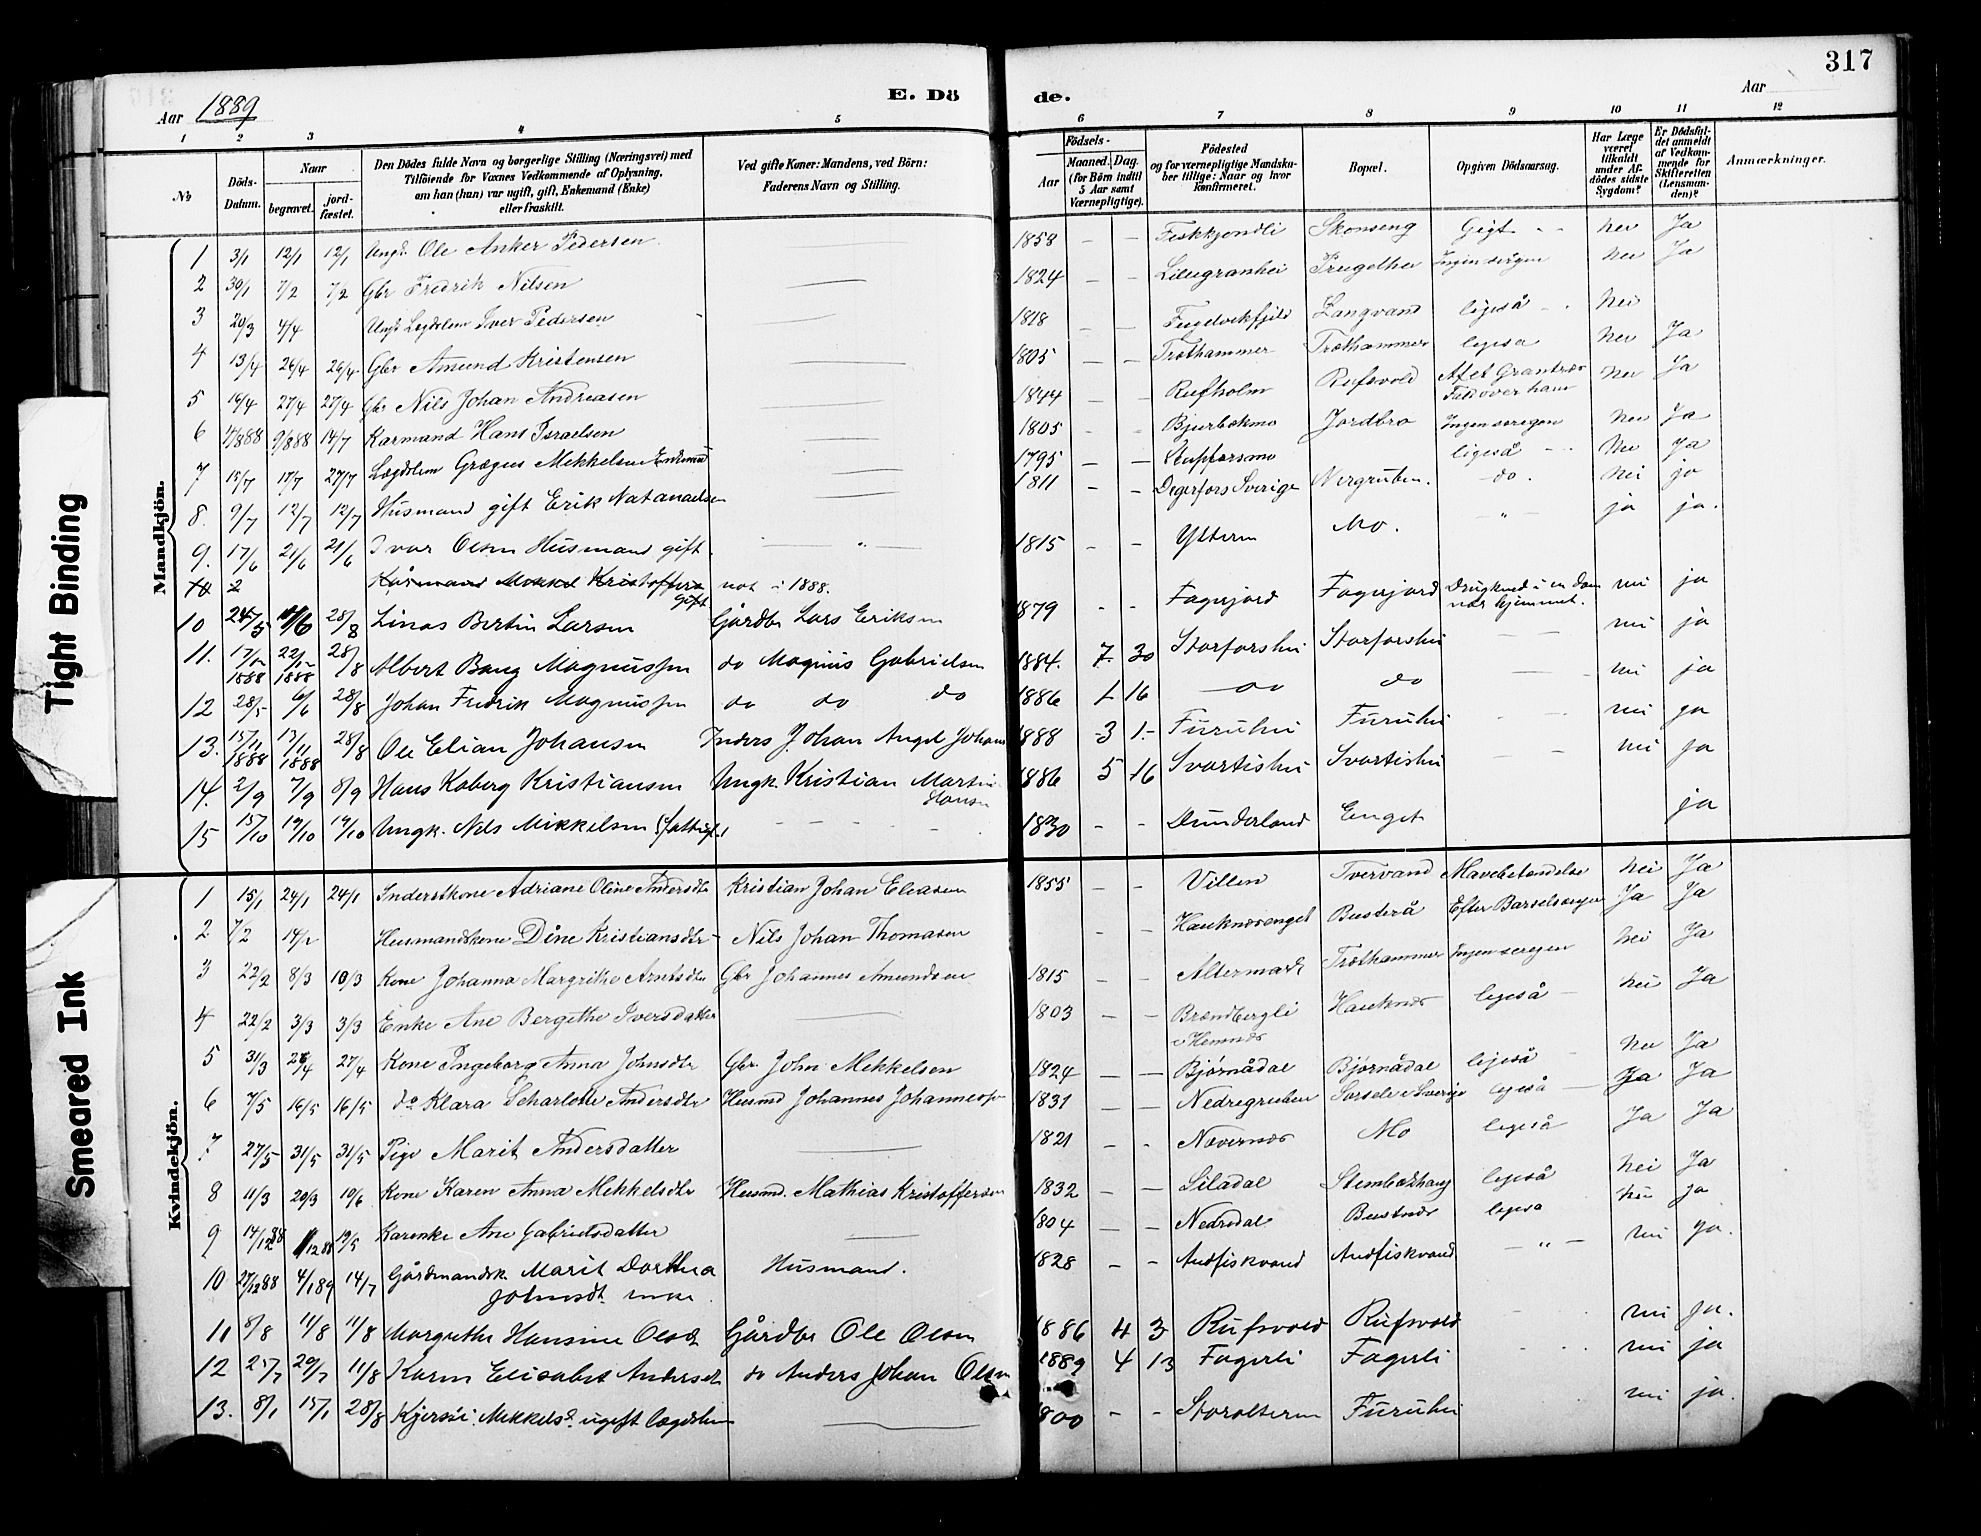 317
Aar 1889
E. Dö
de.
Aar
1 2 3 4 5 6 7 8 9 10 11 12
№
Döds-Datum.
Naar
begravet.
jordfæstet.
Den Dödes fulde Navn og borgerlige Stilling (Næringsvei) med
Tilföiende for Voxnes Vedkommende af Oplysning,
om han (hun) var ugift, gift, Enkemand (Enke)
eller fraskilt.
Ved gifte Koner: Mandens, ved Börn:
Faderens Navn og Stilling.
Födsels-
Aar
Maaned. Dag.
(for Börn indtil
5 Aar samt
Værnepligtige).
Födested
og for værnepligtige Mandskaber tillige: Naar og hvor
konfirmeret.
Bopæl.
Opgiven Dödsaarsag.
Har Læge
været
tilkaldt
under Afdödes sidste
Sygdom?
Er Dödsfaldet anmeldt
af Vedkommende for
Skifteretten
(Lensmanden)?
Anmærkninger.
Tight Binding
Smeared Ink
Mandkjön.
1 3/1 12/1 12/1 Ungk. Ole Anker Pedersen 1858 – – Skonseng Gigt nei Ja
2 30/1 7/2 7/2 Gbr Fredrik Nilsen 1824 – – nei Ja
3 20/3 4/4 Ungk. Lægdslem Iver Pedersen 1818 – – Langvand ligeså nei
4 13/4 26/4 26/4 Gbr Amund Kristensen 1805 – – Træthammer Træthammer ligeså nei Ja
5 16/4 27/4 27/4 Gbr Nils Johan Andreasen 1844 – – Rufholm Rufsvold nei Ja
6 9/888 14/7 Karmand Hans Israelsen 1805 – – Jordbro nei Ja
7 15/7 17/7 27/7 Lægdslem Grægus Mekkelsen Enkemand 1795 – – Stupforsmo ligeså nei Ja
8. 9/7 12/7 12/7 Husmand gift Erik Natanaelsen 1811 – – Degerfors Sverige Nergruben. do. nei ja
9. 17/6 21/6 21/6 Ivar Olsen Husmand gift 1815 – – Yttern Mo. – " – ja ja.
10 2 Kårmand Mekkel Kristoffers gift not i 1888.
10 28/8 Linas Bertin Larsen Gårdbr Lars Eriksen 1879 – – Fagerjord Fagerjord nei ja
11. 17/1 1888 22/1 1888 28/8 Albert Bang Magnussen do Magnus Gabrielsen 1884. 7. 30 Storforshei Storforshei nei ja
12 28/5 6/6 28/8 Johan Fredrik Magnussen do do do 1886 1 16 do do nei ja
13. 15/11 1888 13/11 1888 28/8 Ole Elian Johansen Inders Johan Angel Johans 1888 3 1. Furuhei Furuhei nei ja
14. 2/9 7/9 8/9 Hans Koberg Kristiansen Ungk. Kristian Martin Hansen 1886 5 16 Svartishei Svartishei nei ja
15 15/10 19/10 19/10 Ungk. Nils Mikkelsen (fattig) 1830 – – Dunderland Enget ja
Kvindekjön.
1 15/1 24/1 24/1 Inderstkone Adriane Oline Andersdtr Kristian Johan Eleasen 1855 – – Villen Tverrvand Mavebetændelse nei Ja
2 7/2 14/2 Husmandskone Dine Kristiansdtr Nils Johan Thomasen – – Hauknesenget Busterå Efter Barselsengen Ja Ja
3 22/2 8/3 10/3 Kone Johanna Margrethe Arntsdtr Gbr Johannes Amundsen 1815 – – Altermark Træthammer Ingen seregen nei Ja
4 22/2 3/3 3/3 Enke Ane Bergethe Iversdatter 1803 – – Brændbergli i Hemnes Hauknes ligeså nei Ja
5 31/3 26/4 27/4 Kone Ingeborg Anna Johnsdtr Gbr. John Mekkelsen 1824 – – Bjørnådal Bjørnådal ligeså nei Ja
6 7/5 16/5 16/5 do Klara Scharlotte Andersdtr Husmd Johannes Johannesen 1831 – – Nedregruben Sorsele i Sverige ligeså Ja Ja
7 27/5 31/5 31/5 Pige Marit Andersdatter 1821 – – Nævernes Mo ligeså Ja Ja
8 11/3 20/3 10/6 Kone Karen Anna Mekkelsdtr Husmd. Mathias Kristoffersen 1832 – – Siladal Stenbækhaug ligeså nei Ja
9 14/1288 19/5 Karenke Ane Gabrielsdatter 1804 – – Nedredal Bustnes ligeså nei ja
10 27/1288 4/189 14/7 Gårdmandsk. Marit Dorthea Johnsdt. Husmand. 1828 – – Andfiskvand Andfiskvand – " – nei ja.
11 8/8 11/8 11/8 Margrethe Hansine Olsdt Gårdbr Ole Olsen 1886 4 3 Rufsvold Rufsvold nei ja.
12 25/7 29/7 11/8 Karen Elisabet Andersdt do Anders Johan Olsen 1889 4 13 Fagerli Fagerli nei ja
13. 8/1 15/1 28/8 Kjersti Mekkelsd. ugift lægdslem 1800 – – Storalteren Furuhei nei ja.